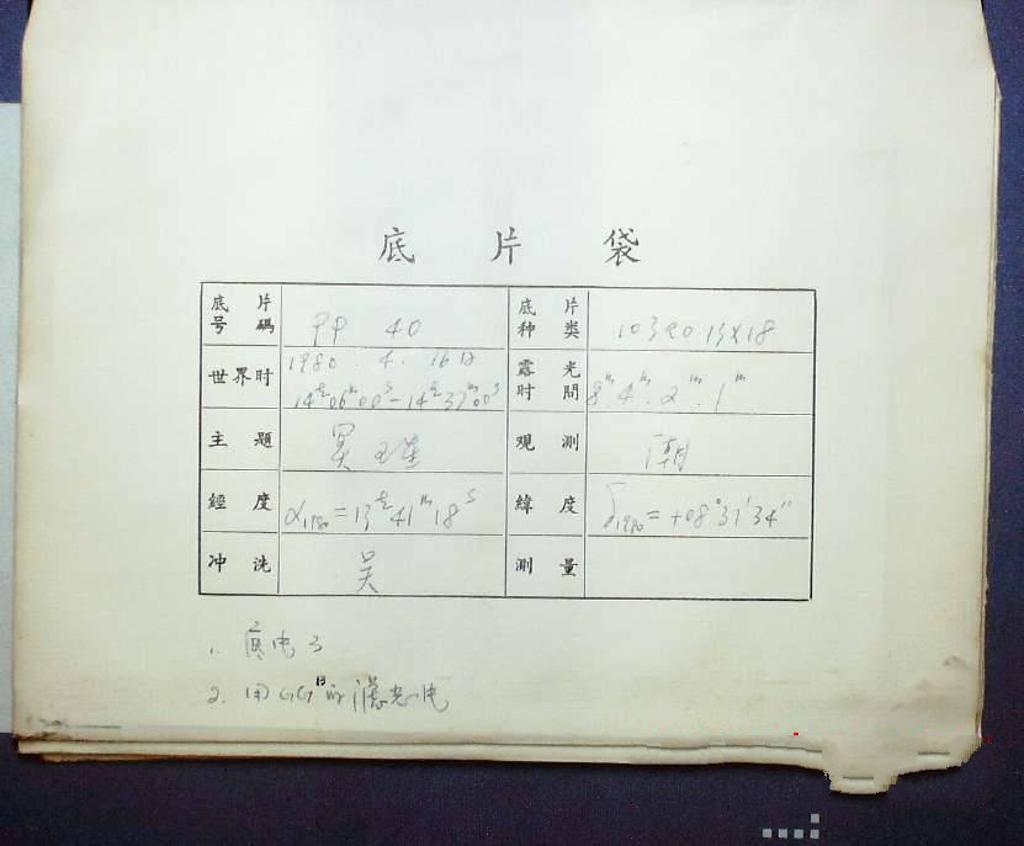 底 片 袋
底片号碼 PP 40 底片种类 103aO 13×18
世界时 1980. 4. 16日 14ʰ06ᵐ00ˢ-14ʰ37ᵐ00ˢ 露光时間 8ᵐ.4ᵐ.2ᵐ.1ᵐ
主題 冥王星 观測
經度 α₁₉₈₀=13ʰ41ᵐ18ˢ 緯度 δ₁₉₈₀=+08°31′34″
冲洗 吴 測量
1.
2. 用GG¹³的滤光片